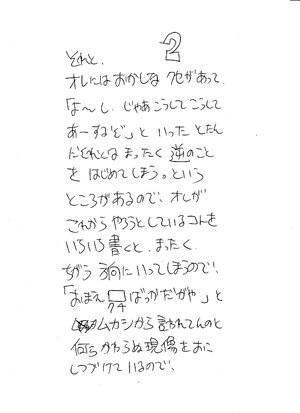 2
それと、
オレにはおかしなクセがあって、
「よ〜し、じゃあこうしてこうして
あーするぞ」といったとたん
だそれとはまったく逆のこと
をはじめてしまう。という
ところがあるので、オレが
これからやろうとしているコトを
いちいち書くと、まったく
ちがう方向にいってしまうので、
「おまえ口ばっかだがや」と
クチ
ムカシから言われてんのと
何らかわらぬ現傷をおこ
しつづけているので、